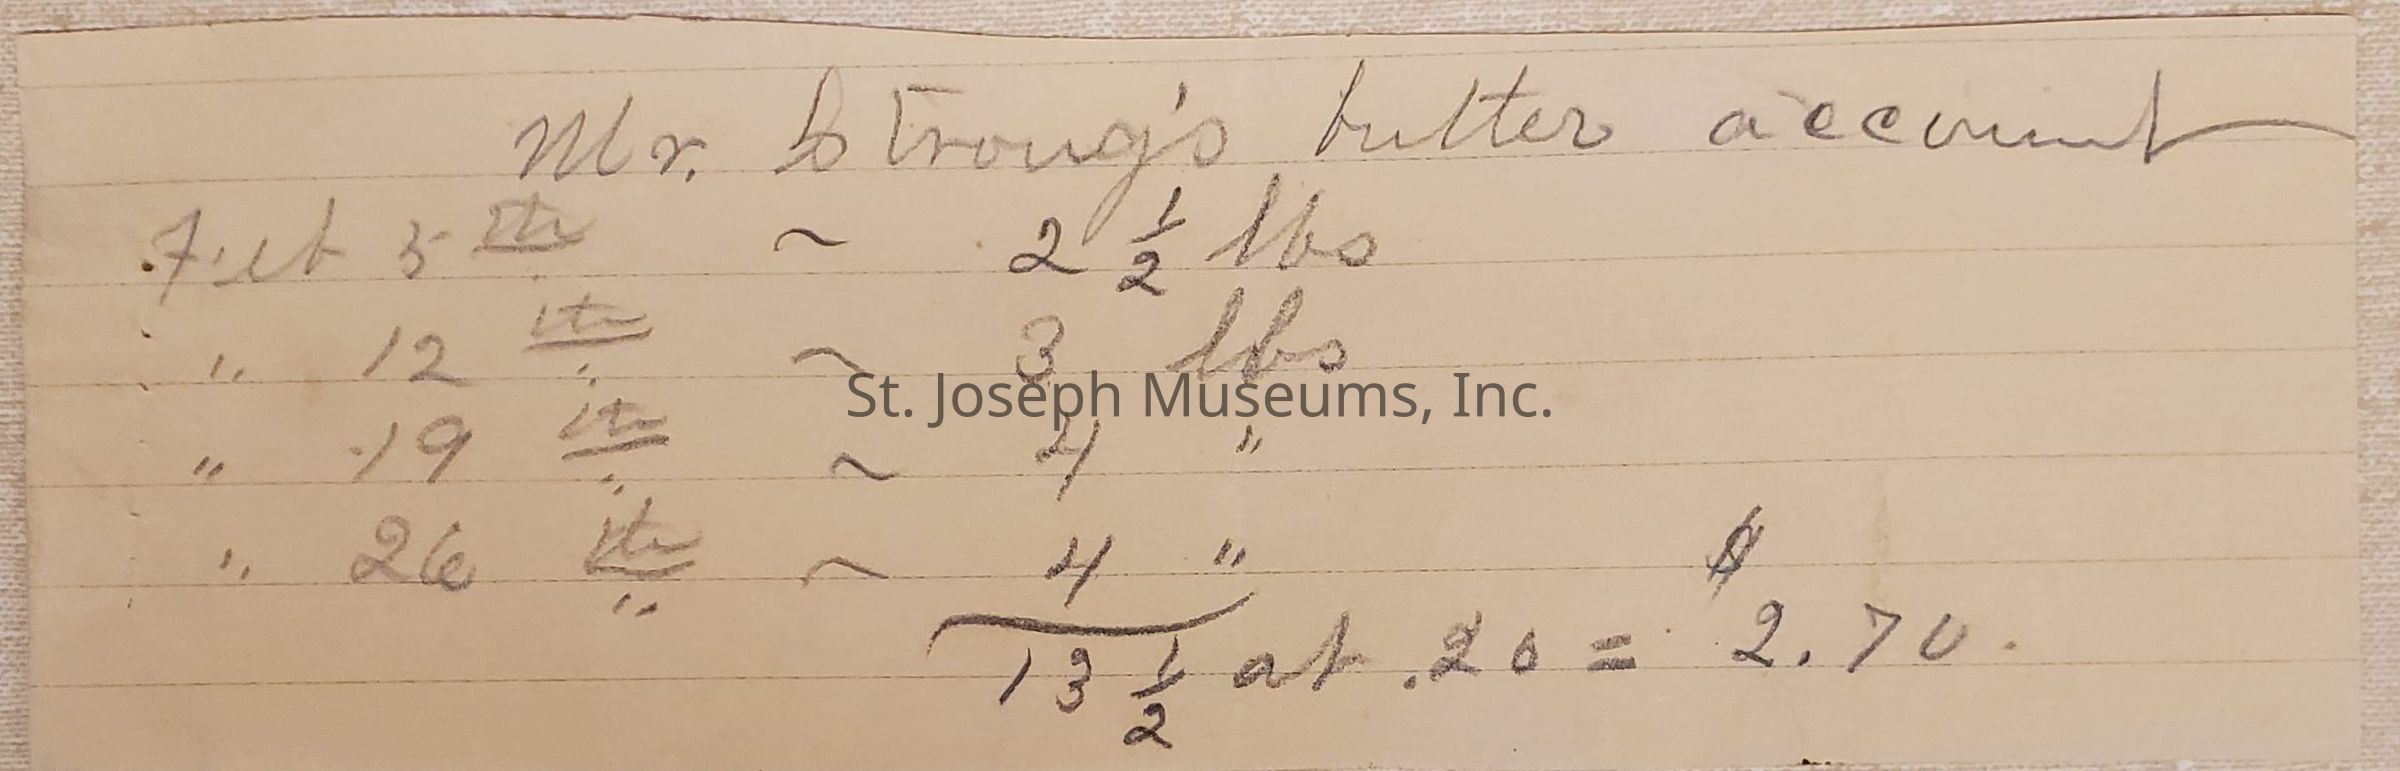 Mr. Strong's butter account
5th ~ 2 1/2 lbs
" 12th ~ 3 lbs
" 19th ~ 4 "
" 26th ~ 4 "
13 1/2 at .20 = $ 2.70.
St. Joseph Museums, Inc.